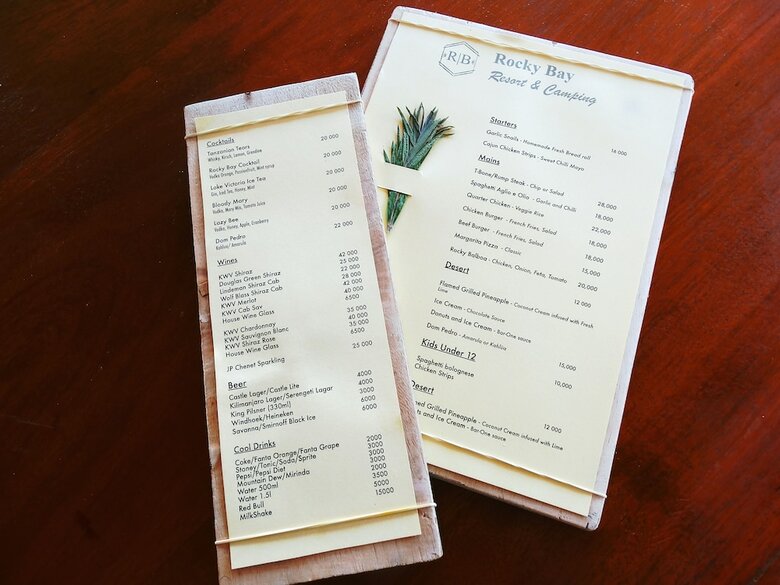 Cocktails
Tanzanian Tears 20 000
Whisky, Kirsch, Lemon, Grandine
Rocky Bay Cocktail 20 000
Vodka Orange, Passionfruit, Mint syrup
Lake Victoria Ice Tea 20 000
Gin, Iced Tea, Honey, Mint
Bloody Mary 20 000
Vodka, Mary Mix, Tomato Juice
Lazy Bee 20 000
Vodka, Honey, Apple, Cranberry
Dom Pedro 22 000
Kahlua/ Amarula
Wines
KWV Shiraz 42 000
Douglas Green Shiraz 25 000
Lindeman Shiraz Cab 22 000
Wolf Blass Shiraz Cab 28 000
KWV Merlot 42 000
KWV Cab Sav 40 000
House Wine Glass 6500
KWV Chardonnay 35 000
KWV Sauvignon Blanc 40 000
KWV Shiraz Rose 35 000
House Wine Glass 6500
JP Chenet Sparkling 25 000
Beer
Castle Lager/Castle Lite 4000
Kilimanjaro Lager/Serengeti Lagar 4000
King Pilsner (330ml) 3000
Windhoek/Heineken 6000
Savanna/Smirnoff Black Ice 6000
Cool Drinks
Coke/Fanta Orange/Fanta Grape 2000
Stoney/Tonic/Soda/Sprite 3000
Pepsi/Pepsi Diet 3000
Mountain Dew/Mirinda 2000
Water 500ml 3500
Water 1.5l 5000
Red Bull 15000
MilkShake
R|B
Rocky Bay
Resort & Camping
Starters
Garlic Snails - Homemade Fresh Bread roll
Cajun Chicken Strips - Sweet Chilli Mayo 16 000
Mains
T-Bone/Rump Steak - Chip or Salad
Spaghetti Aglio e Olio - Garlic and Chilli 28,000
Quarter Chicken - Veggie Rice 18,000
Chicken Burger - French Fries, Salad 22,000
Beef Burger - French Fries, Salad 18,000
Margarita Pizza - Classic 18,000
Rocky Balboa - Chicken, Onion, Feta, Tomato 15,000
20,000
Desert
Flamed Grilled Pineapple - Coconut Cream infused with Fresh 12 000
Lime
Ice Cream - Chocolate Sauce
Donuts and Ice Cream - Bar-One sauce
Dom Pedro - Amarula or Kahlua
Kids Under 12
Spaghetti bolognese 15,000
Chicken Strips 10,000
Desert
Flamed Grilled Pineapple - Coconut Cream infused with Lime 12 000
and Ice Cream - Bar-One sauce